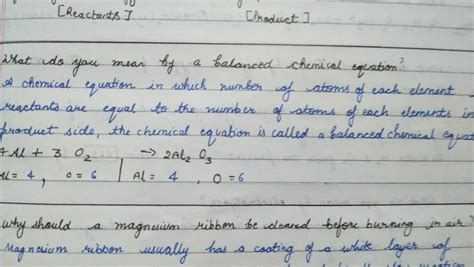 [Reactants] [Product]
What do you mean by a balanced chemical equation?
A chemical equation in which number of atoms of each element
reactants are equal to the number of atoms of each elements in
product side, the chemical equation is called a balanced chemical equat
Al + 3 O2 → 2Al2 O3
= 4, O = 6 | Al = 4, O = 6
Why should a magnesium ribbon be cleaned before burning in air?
Magnesium ribbon usually has a coating of a white layer of